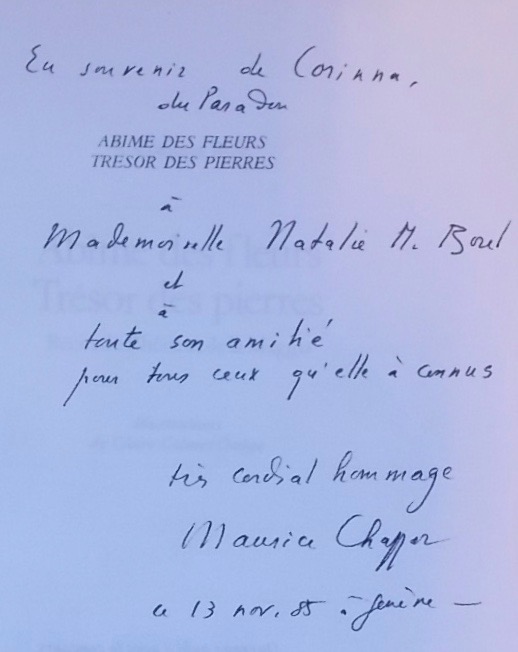 En souvenir de Corinna,
du Paradou
ABIME DES FLEURS
TRESOR DES PIERRES
à
Mademoiselle Natalie M. Borel
et
à
toute son amitié
pour tous ceux qu'elle à connus
très cordial hommage
Maurice Chappaz
ce 13 nov. 85 à Genève —
Abîme des fleurs
Trésor des pierres